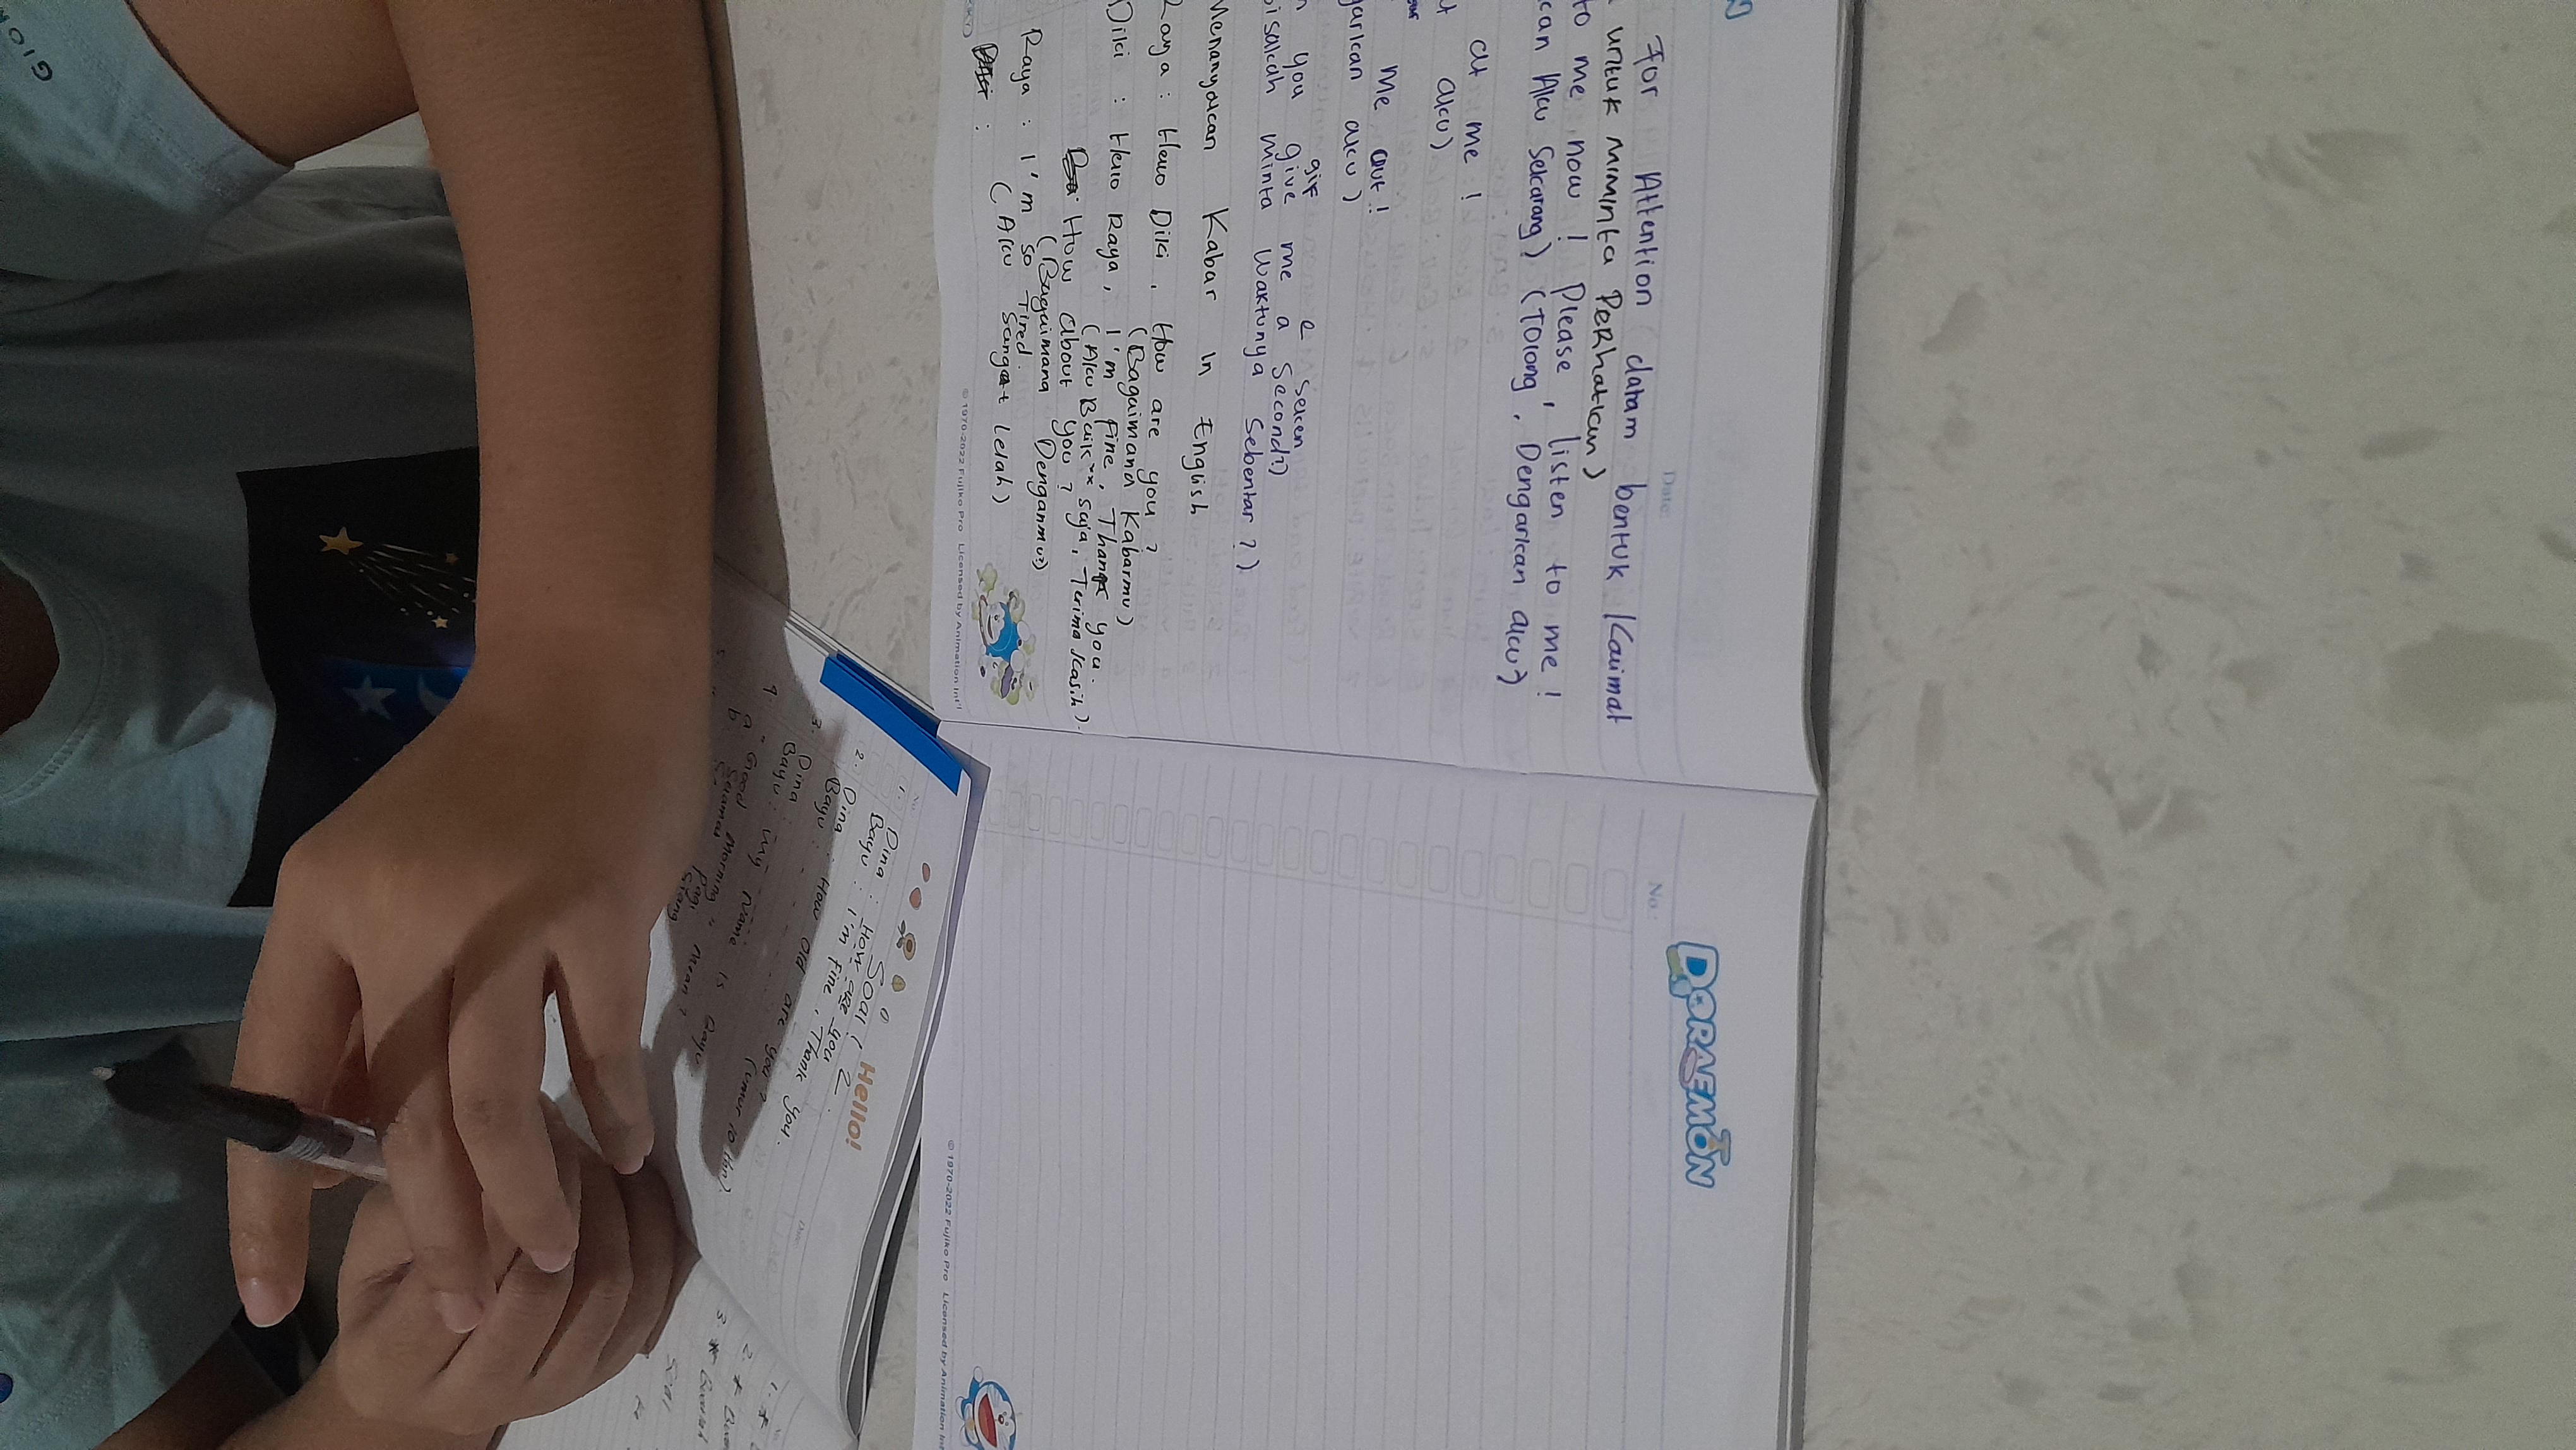 For Attention dalam bentuk Kalimat
untuk Miminta Perhatikan)
to me now! Please, listen to me!
kan Aku Sekarang) (Tolong, Dengarkan aku?)
at me!
aku)
me out!
garkan aku)
gif e seken
you give me a Second?)
bisakah minta waktunya Sebentar?)
Menanyakan Kabar in English
Raya: Halo Diki, How are you?
(Bagaimana Kabarmu)
Diki: Halo Raya, I'm fine, Thank you.
(Aku Baik** saja, Terima kasih).
How about you?
(Bagaimana Denganmu?)
Raya: I'm so Tired.
(Aku Sangat Lelah)
© 1970-2022 Fujiko Pro Licensed by Animation Int'l
Date:
No.:
DORAEMON
© 1970-2022 Fujiko Pro Licensed by Animation Int
Hello!
Soal
1. Dina: How are you?
Bayu: I'm Fine, Thank you.
2. Dina: How old are you?
Bayu: (umur 10 thn).
3. Dina:
Bayu: My Name is Bayu
4. "Good Morning" Mean?
a. Selamat Pagi
b. Siang
5.
1. *
2. *
3 *
GIO